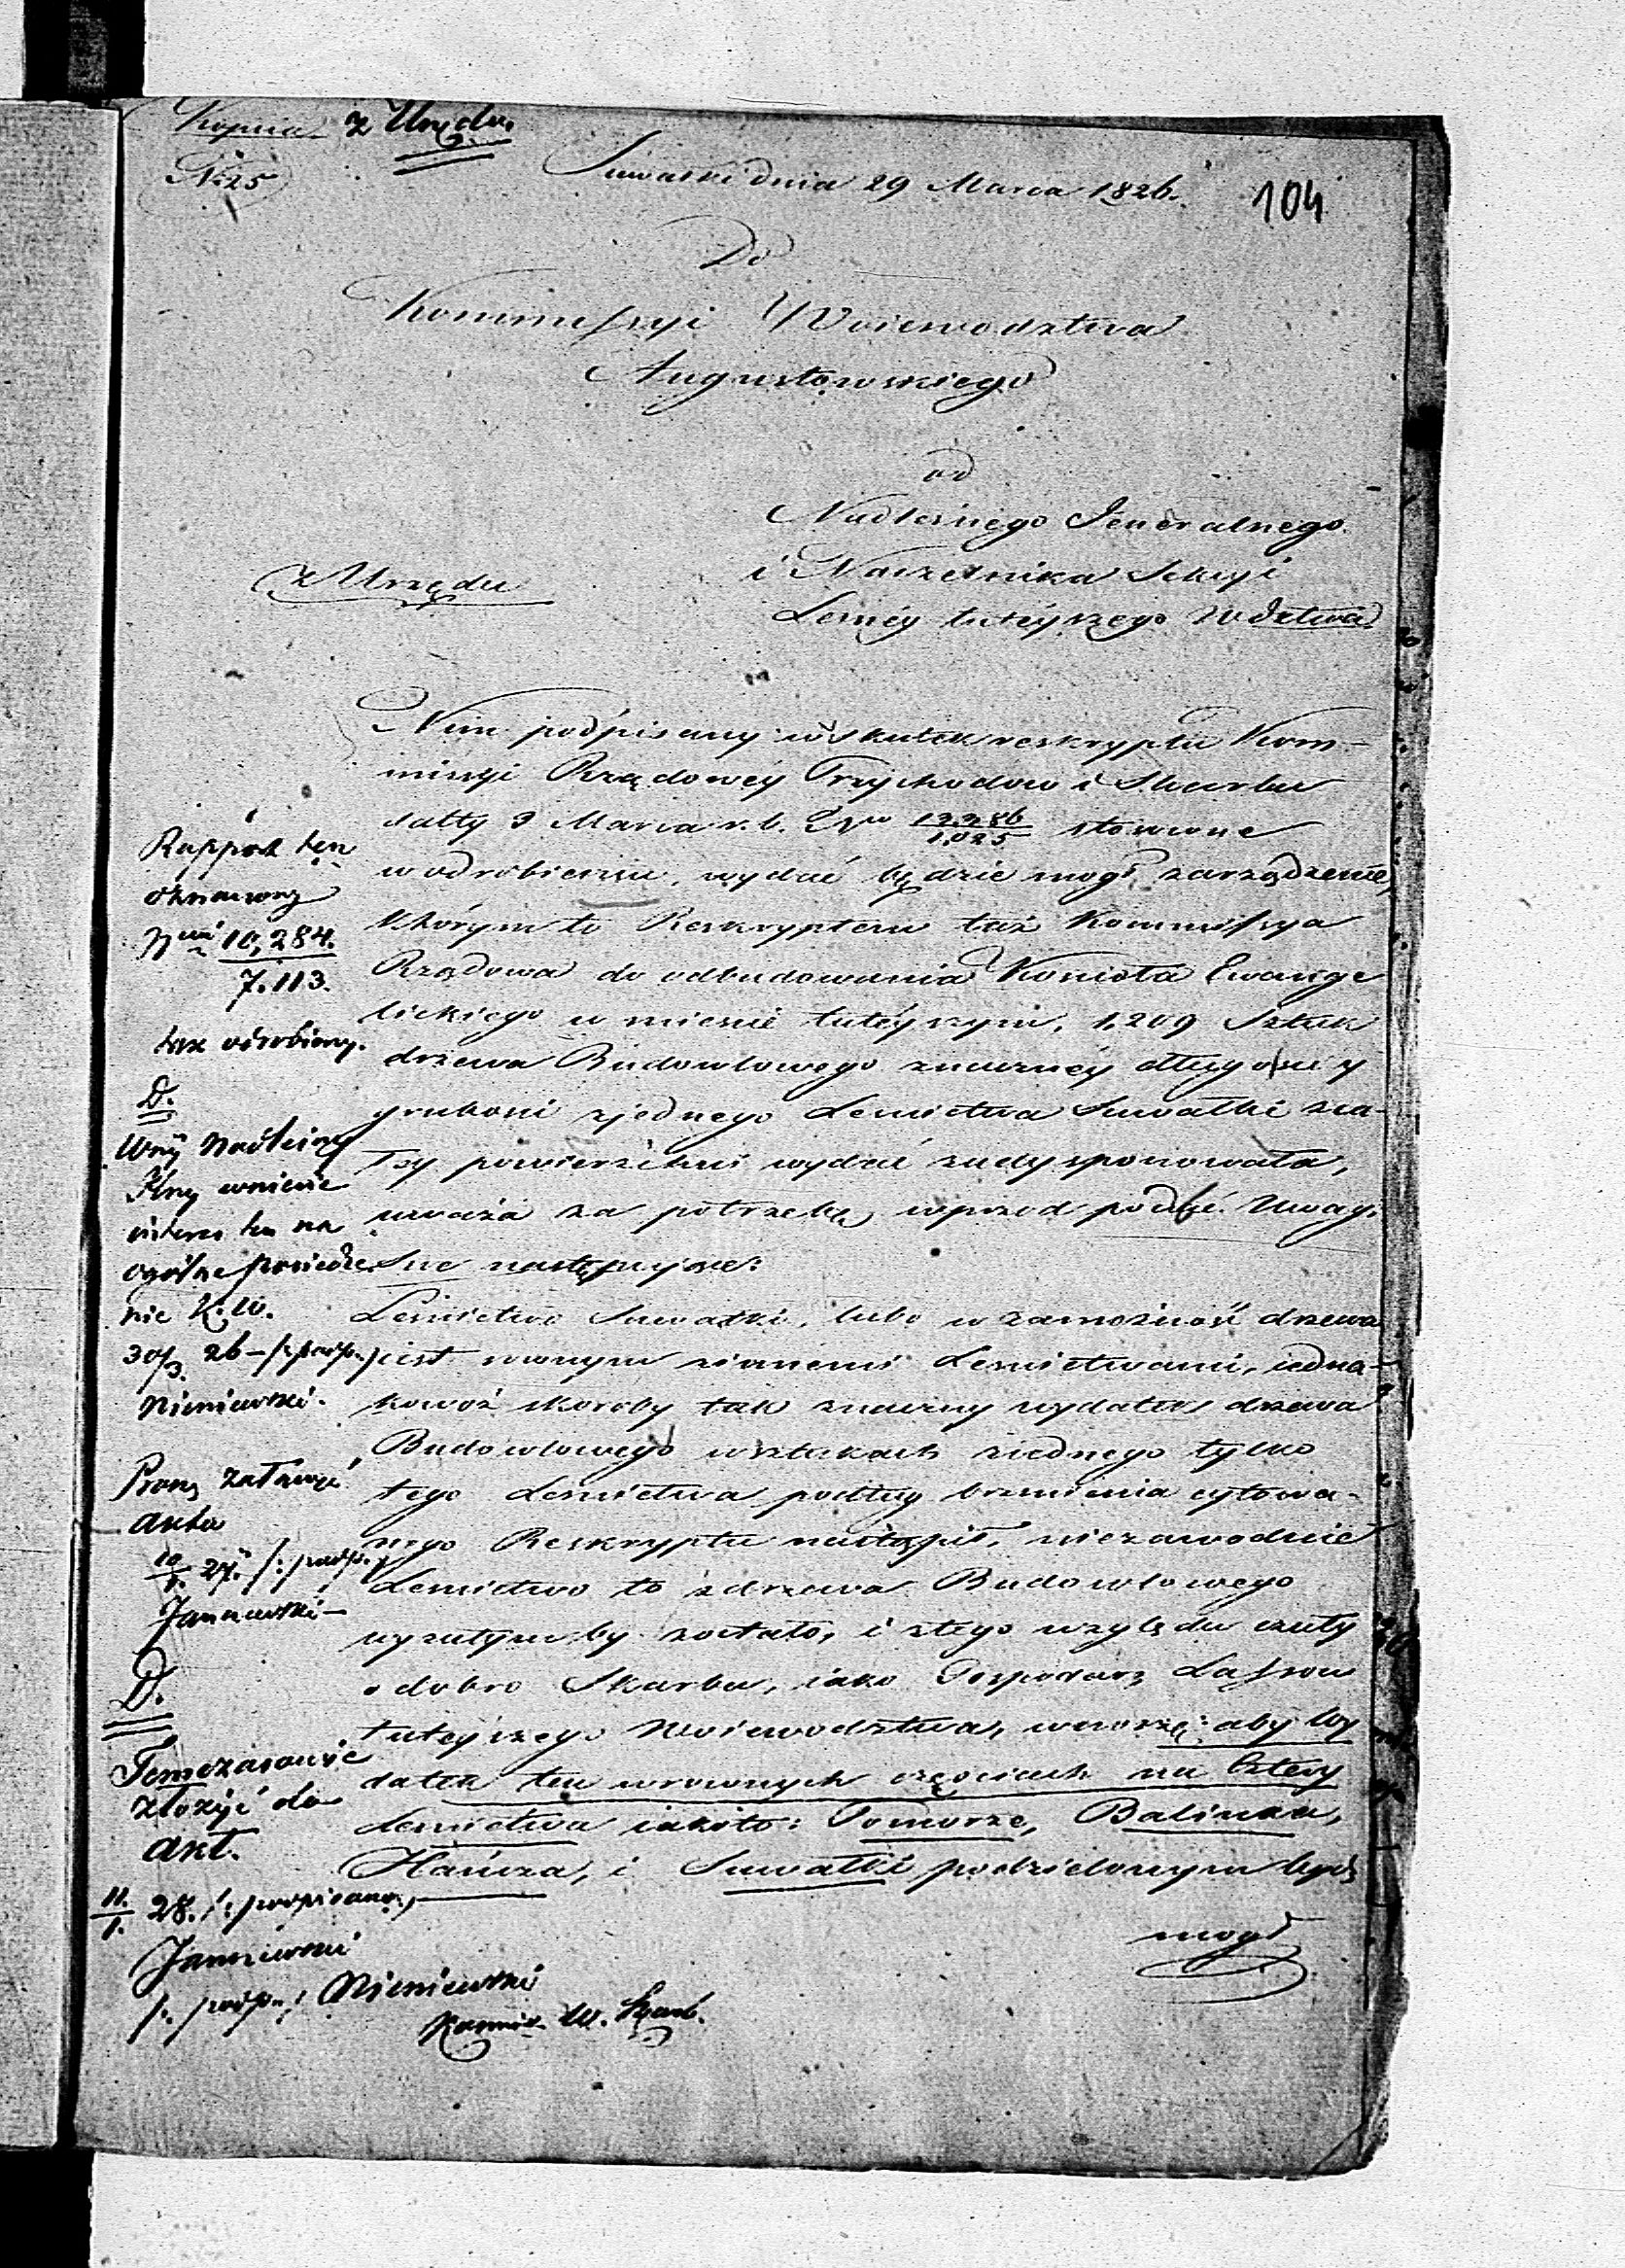 Kopia z Urzędu.
N. 25
Suwałki dnia 29 Marca 1826.
104
Do
Kommissyi Woiewodztwa
Augustowskiego
od
Nadleśnego Jeneralnego
i Naczelnika Sekcyi
z Urzędu
Leśnéy tutéyszego Wdztwa
Nim podpisany wskutek reskryptu Kom-
missyi Rządowéy Przychodow i Skarbu
datty 3 Marca r. b. 12286/1,025 stosowne
w odrobieniu, wydać będzie mogł zarządzenie,
którym to Reskryptem taż Kommissya
Rządowa do odbudowania Kosciola Ewange
lickiego w miescie tutéyszym, 1,209 Sztuk
drzewa Budowlowego znaczney długosci y
grubosci zjednego Lesnictwa Suwałki zca-
łey powierzchni wydać zadysponowała,
uważa za potrzebę wprzod podać Uwagi
swe następuiące:
Leśnictwo Suwałki, lubo w zamożność drzewa
iest rownym zinnemi Lesnictwami, iedna-
kowoż skoroby tak znaczny wydatek drzewa
Budowlowego wsztukach ziednego tylko
tego Lesnictwa podług brzmienia cytowa-
nego Reskryptu nastąpił, niezawodnie
Lesnictwo to zdrzewa Budowlowego
wyzutym by zostało, i ztego względu czuły
o dobro Skarbu, iako Gospodarz Lassow
tutéyszego Woiewodztwa, wnoszę: aby Wy
datek ten wrownych częściach na Cztery
Lesnictwa iakoto: Pomorze, Balinka,
Hańcza, i Suwałki podzielonym być
mogł
Rapport ten
oznaczony
10,284.
7.113.
tax odrobiony.
D.
Wny Nadleśny
Jlny wniesie
interes ten na
ogólne posiedze
nie K. W.
30/3. 26 – /:podp:/
Nieniewski.
Proszę załączyć
akta
10/1. 27. /:podp:/
Janczewski –
D.
Tymczasowie
złożyć do
akt.
11./1. 28. /:podpisano:/
/:podp:/ Nieniewski
W. Skarb.